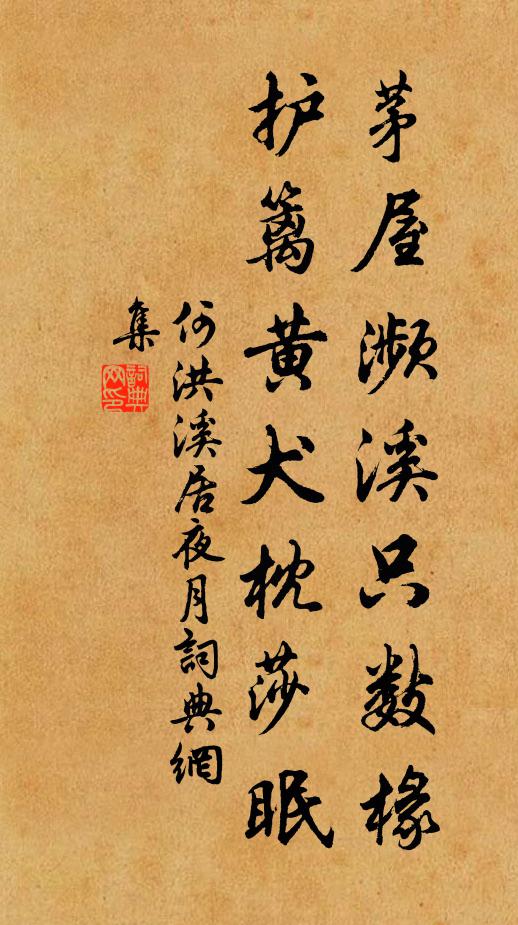 茅屋濒溪只数椽
护篱黄犬枕莎眠
何洪溪居夜月詞典網
集
詞典
网印